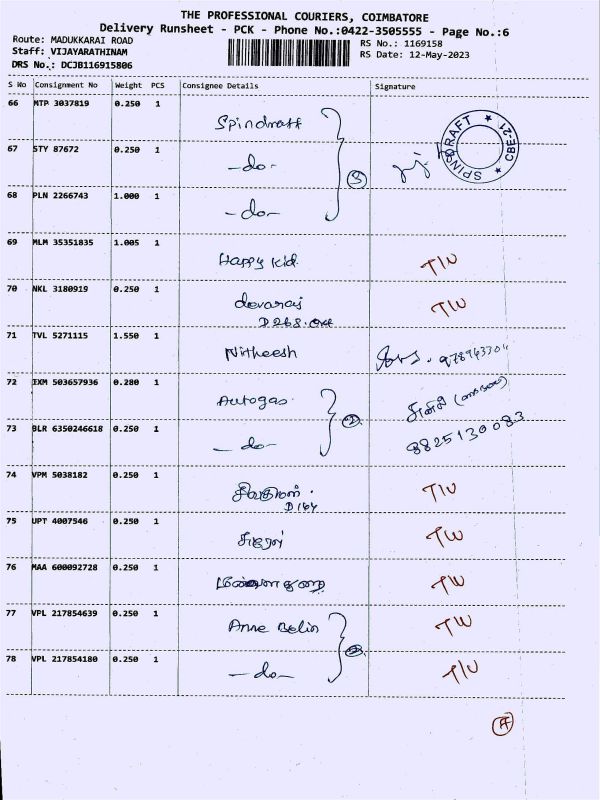 THE PROFESSIONAL COURIERS, COIMBATORE
Delivery Runsheet - PCK - Phone No.:0422-3505555 - Page No.:6
Route: MADUKKARAI ROAD
Staff: VIJAYARATHINAM
DRS No.: DCJB116915806
RS No.: 1169158
RS Date: 12-May-2023
S No Consignment No Weight PCS Consignee Details Signature
66 MTP 3037819 0.250 1 Spindraft
SPINDRAFT ★ CBE-21 ★
67 STY 87672 0.250 1 -do-
3
68 PLN 2266743 1.000 1 -do-
69 MLM 35351835 1.005 1 Happy kid T/W
70 NKL 3180919 0.250 1 devaraj T/W
71 TVL 5271115 1.550 1 Nitheesh
72 IXM 503657936 0.280 1 Autogas
2
73 BLR 6350246618 0.250 1 -do- 8825130083
74 VPM 5038182 0.250 1 T/W
D164
75 UPT 4007546 0.250 1 T/W
76 MAA 600092728 0.250 1 T/W
77 VPL 217854639 0.250 1 Anne Belin T/W
2
78 VPL 217854180 0.250 1 -do- T/W